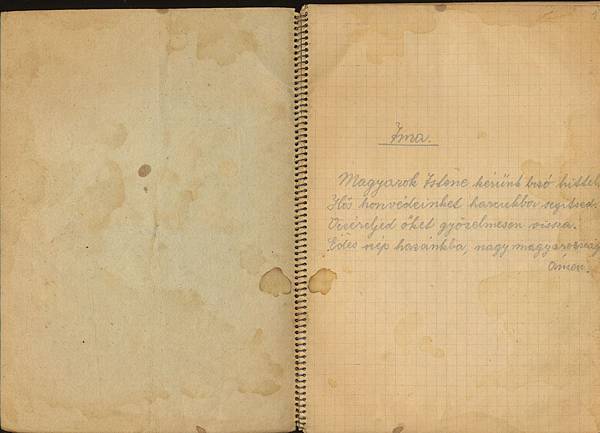 Ima.
Magyarok Istene kérünk bízó hittel,
Hős honvédeinket harcukba segítsed.
Vezéreljed őket győzelmesen vissza.
Édes szép hazánkba, nagy magyarország
Ámen.